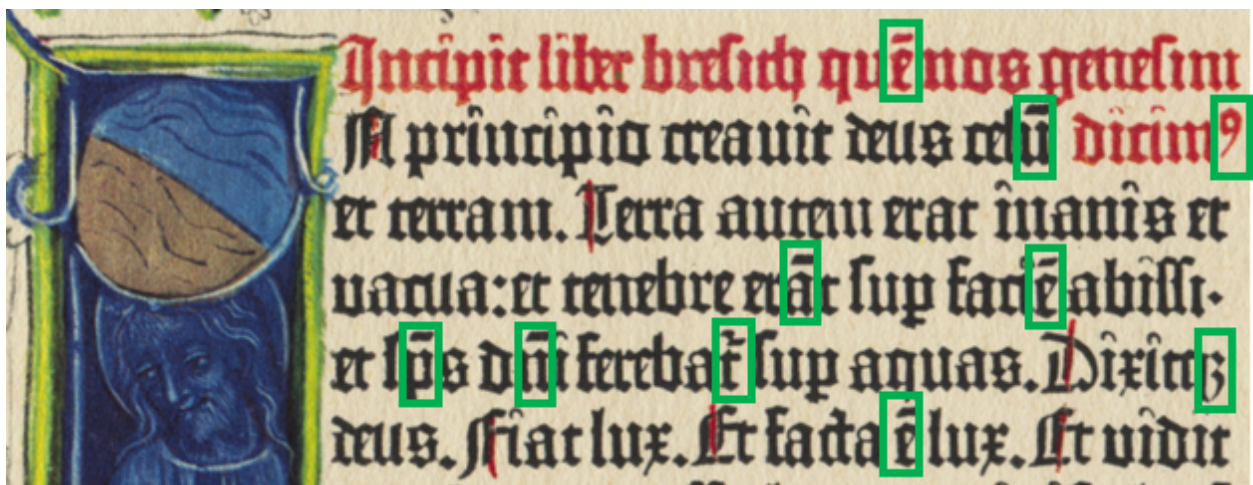 Incipit liber breſith quē nos geneſim
N principio creauit deus celū dicimꝰ
et terram. Terra autem erat inanis et
vacua: et tenebre erāt ſuꝑ faciē abiſſi.
et ſp̄s dn̄i ferebat᷑ ſuꝑ aquas. Dixitqꝫ
deus. Fiat lux. Et facta ē lux. Et vidit